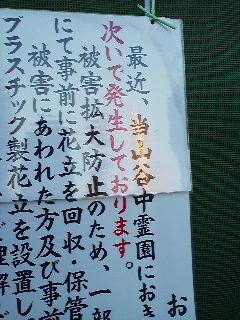 お
最近、当山谷中霊園におき
次いで発生しております。
被害拡大防止のため、一部
にて事前に花立を回収・保管
被害にあわれた方及び事前
プラスチック製花立を設置し
ご理解